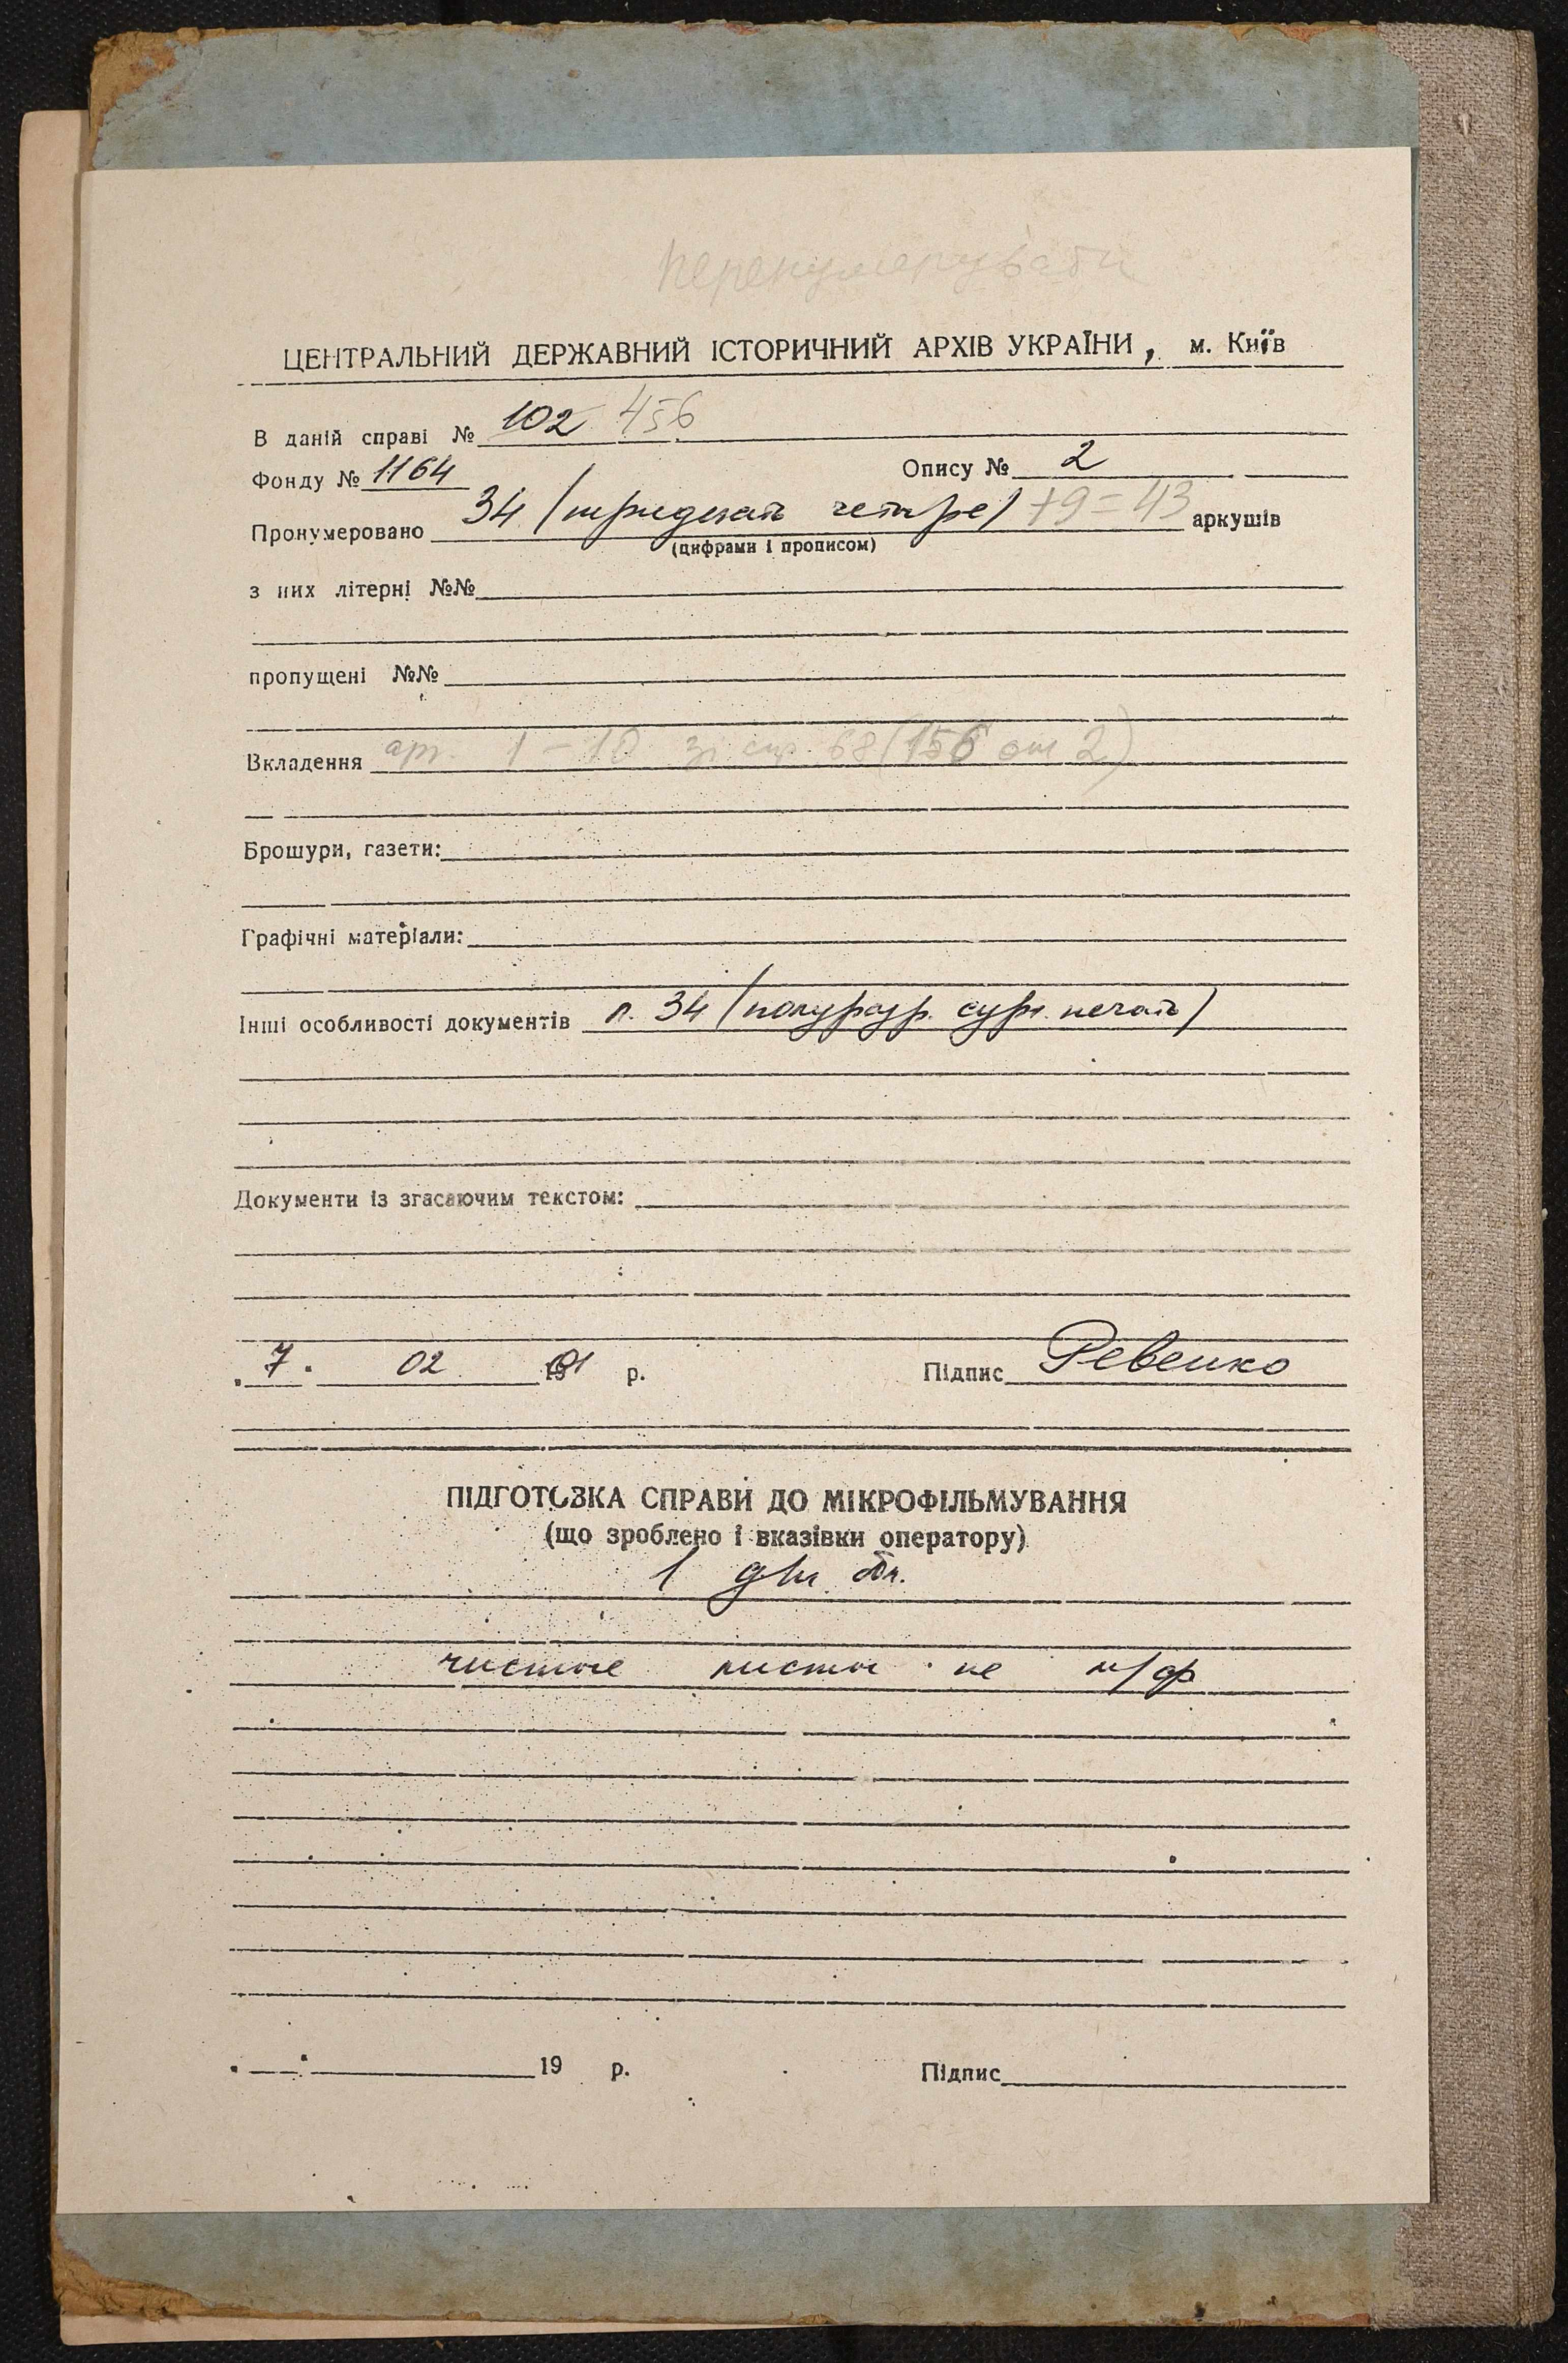 перенумерувати
ЦЕНТРАЛЬНИЙ ДЕРЖАВНИЙ ІСТОРИЧНИЙ АРХІВ УКРАЇНИ, м. Київ
В даній справі № 102 456
Фонду № 1164 Опису № 2
Пронумеровано 34 (тридцать четыре) +9=43 аркушів
(цифрами і прописом)
з них літерні №№
пропущені №№
Вкладення арк. 1-10 зі спр. 68 (156 оп 2)
Брошури, газети:
Графічні матеріали:
Інші особливості документів л. 34 (полуразр. сург. печать)
Документи із згасаючим текстом:
7. 02 01 р. Підпис Ревенко
ПІДГОТОВКА СПРАВИ ДО МІКРОФІЛЬМУВАННЯ
(що зроблено і вказівки оператору)
1
чистые листы не м/ф
19 р. Підпис